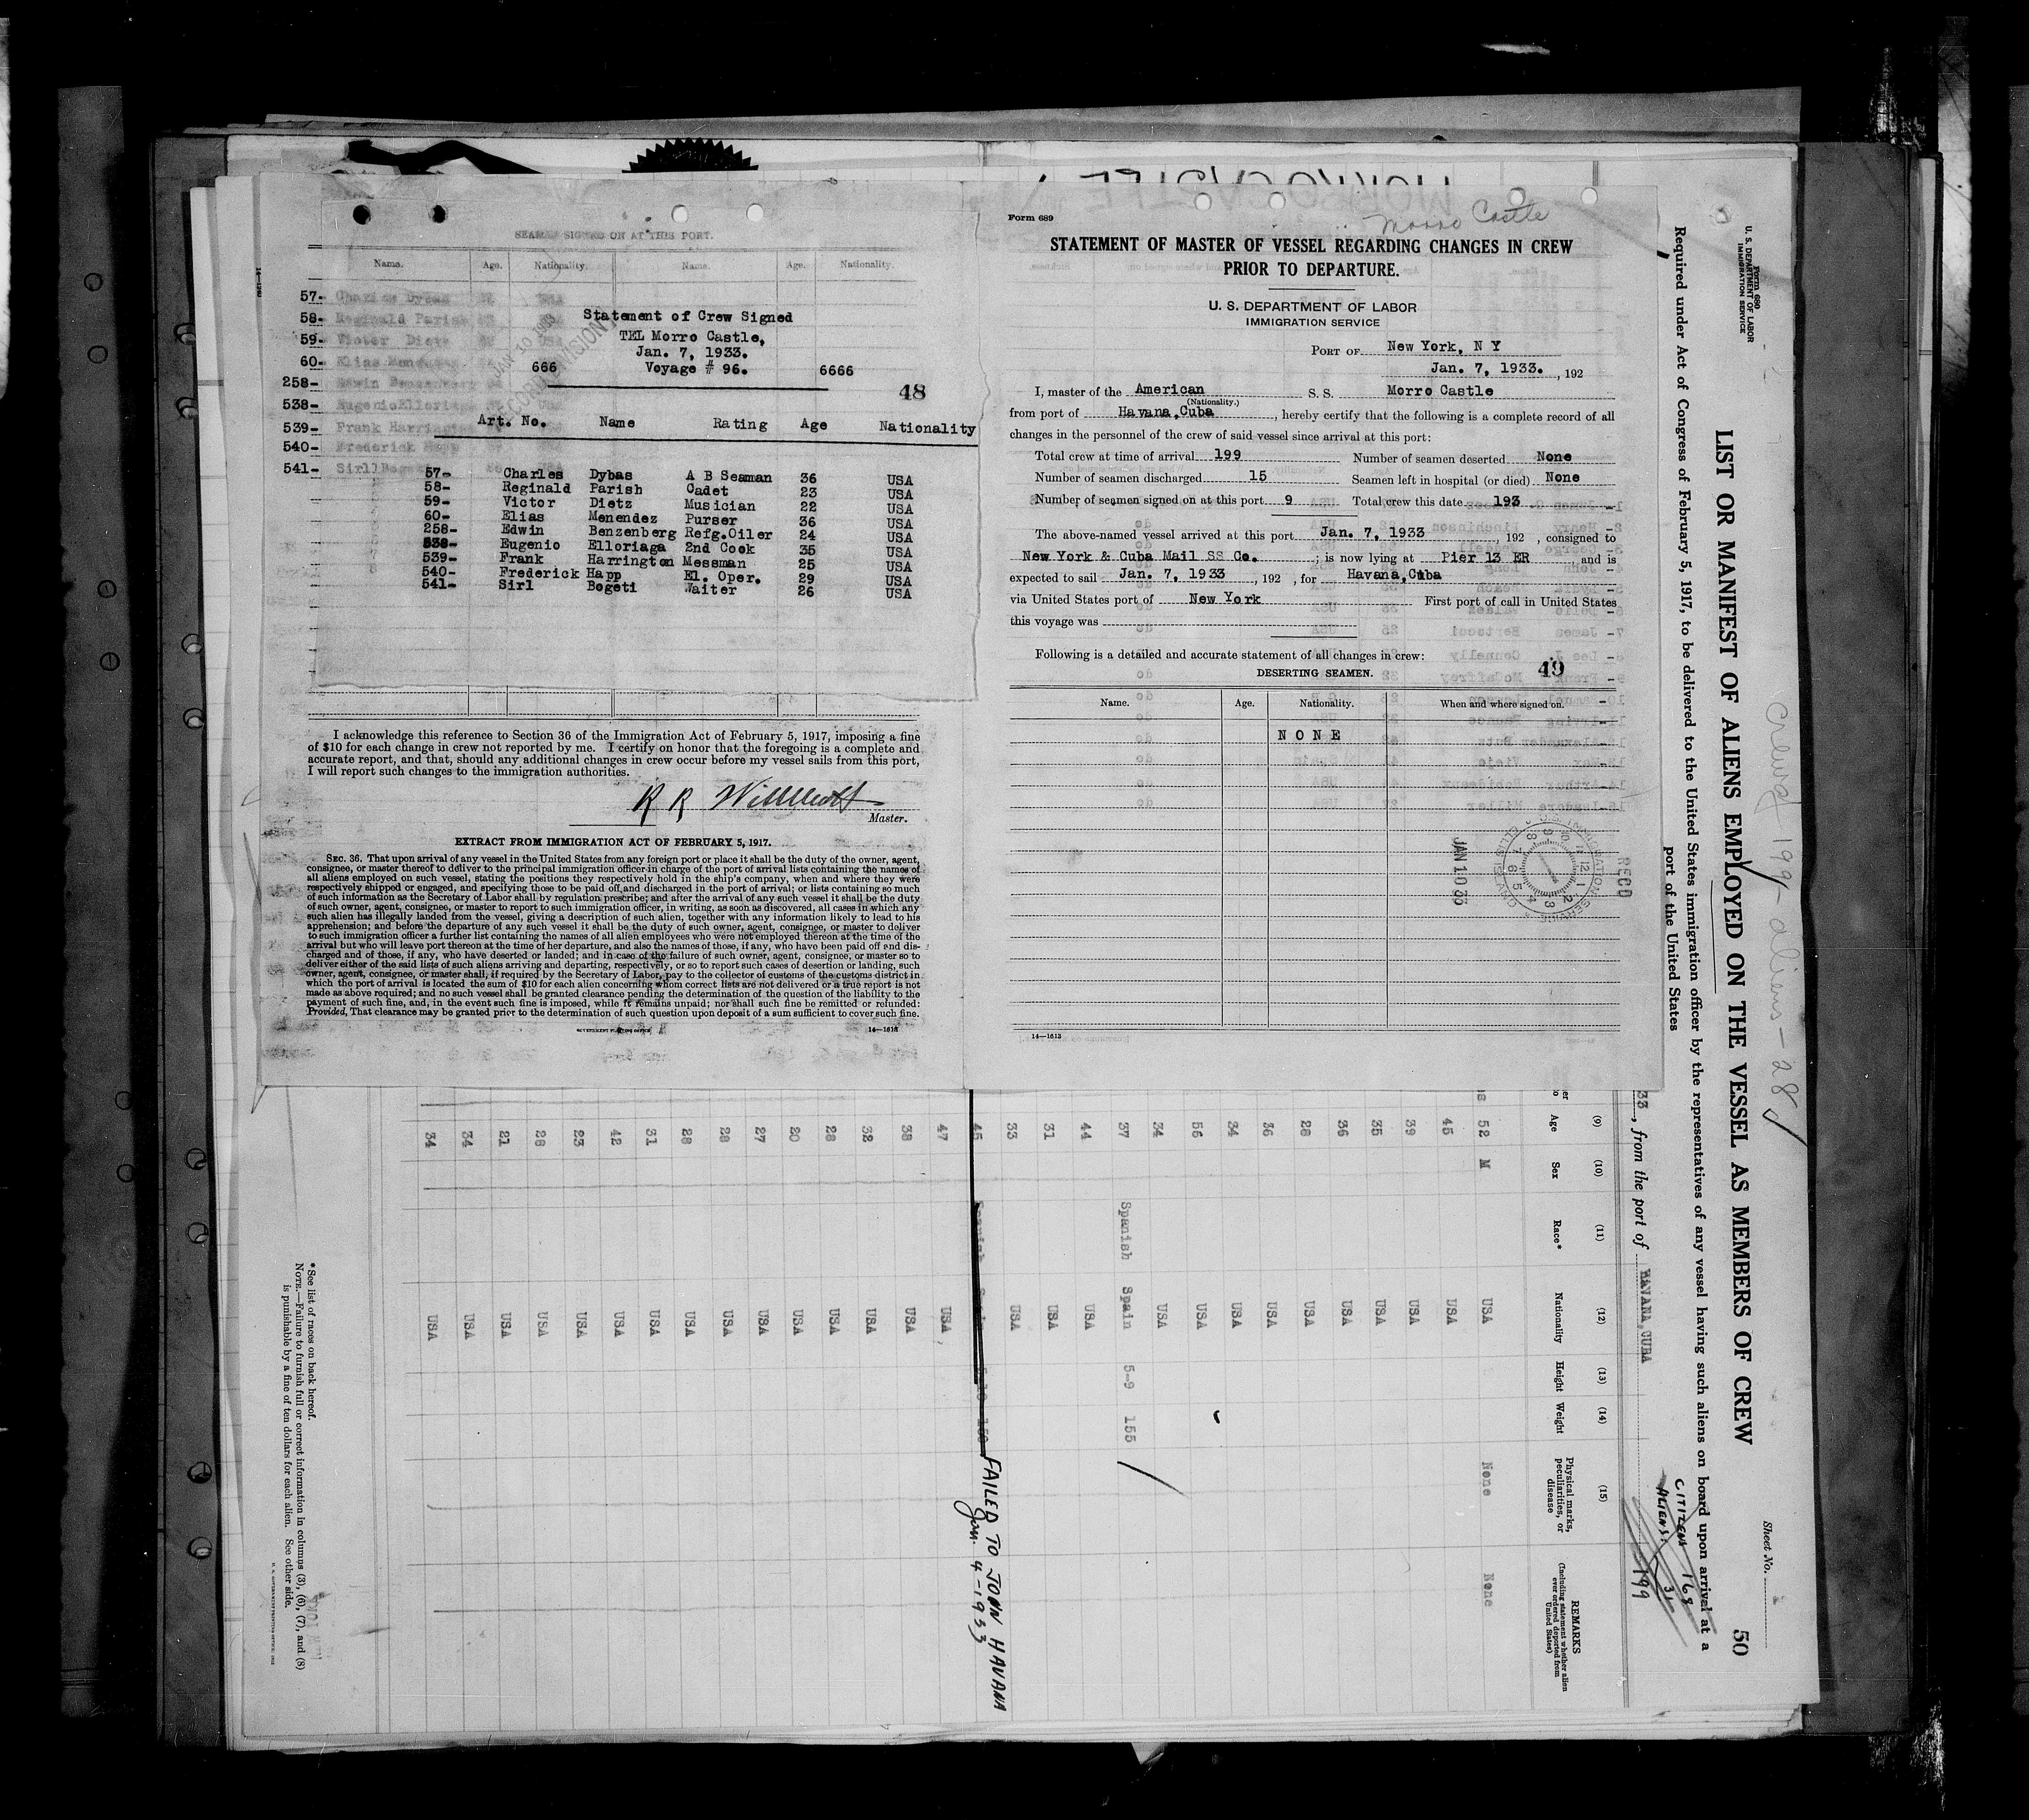 SEAMEN SIGNED ON AT THIS PORT.
Name. Age. Nationality. Name. Age. Nationality.
57- Charles Dybas
58- Reginald Parish
59- Victor Dietz
60- Elias Menendez
258- Edwin Benzenberg
538- Eugenio Elloriaga
539- Frank Harrington
540- Frederick Happ
541- Sirl Bogeti
Statement of Crew Signed
TEL Morro Castle,
Jan. 7, 1933.
666 Voyage # 96. 6666
JAN 10 1933
48
Art. No. Name Rating Age Nationality
57- Charles Dybas A B Seaman 36 USA
58- Reginald Parish Cadet 23 USA
59- Victor Dietz Musician 22 USA
60- Elias Menendez Purser 36 USA
258- Edwin Benzenberg Refg.Oiler 24 USA
538- Eugenio Elloriaga 2nd Cook 35 USA
539- Frank Harrington Messman 25 USA
540- Frederick Happ El. Oper. 29 USA
541- Sirl Bogeti Waiter 26 USA
I acknowledge this reference to Section 36 of the Immigration Act of February 5, 1917, imposing a fine
of $10 for each change in crew not reported by me. I certify on honor that the foregoing is a complete and
accurate report, and that, should any additional changes in crew occur before my vessel sails from this port,
I will report such changes to the immigration authorities.
R R Willmott
Master.
EXTRACT FROM IMMIGRATION ACT OF FEBRUARY 5, 1917.
SEC. 36. That upon arrival of any vessel in the United States from any foreign port or place it shall be the duty of the owner, agent,
consignee, or master thereof to deliver to the principal immigration officer in charge of the port of arrival lists containing the names of
all aliens employed on such vessel, stating the positions they respectively hold in the ship's company, when and where they were
respectively shipped or engaged, and specifying those to be paid off and discharged in the port of arrival; or lists containing so much
of such information as the Secretary of Labor shall by regulation prescribe; and after the arrival of any such vessel it shall be the duty
of such owner, agent, consignee, or master to report to such immigration officer, in writing, as soon as discovered, all cases in which any
such alien has illegally landed from the vessel, giving a description of such alien, together with any information likely to lead to his
apprehension; and before the departure of any such vessel it shall be the duty of such owner, agent, consignee, or master to deliver
to such immigration officer a further list containing the names of all alien employees who were not employed thereon at the time of the
arrival but who will leave port thereon at the time of her departure, and also the names of those, if any, who have been paid off and dis-
charged and of those, if any, who have deserted or landed; and in case of the failure of such owner, agent, consignee, or master so to
deliver either of the said lists of such aliens arriving and departing, respectively, or so to report such cases of desertion or landing, such
owner, agent, consignee, or master shall, if required by the Secretary of Labor, pay to the collector of customs of the customs district in
which the port of arrival is located the sum of $10 for each alien concerning whom correct lists are not delivered or a true report is not
made as above required; and no such vessel shall be granted clearance pending the determination of the question of the liability to the
payment of such fine, and, in the event such fine is imposed, while it remains unpaid; nor shall such fine be remitted or refunded:
Provided, That clearance may be granted prior to the determination of such question upon deposit of a sum sufficient to cover such fine.
GOVERNMENT PRINTING OFFICE 14—1613
Form 689
Morro Castle
STATEMENT OF MASTER OF VESSEL REGARDING CHANGES IN CREW
PRIOR TO DEPARTURE.
U. S. DEPARTMENT OF LABOR
IMMIGRATION SERVICE
PORT OF New York, N Y
Jan. 7, 1933. , 192
I, master of the American S. S. Morro Castle
(Nationality.)
from port of Havana,Cuba , hereby certify that the following is a complete record of all
changes in the personnel of the crew of said vessel since arrival at this port:
Total crew at time of arrival 199 Number of seamen deserted None
Number of seamen discharged 15 Seamen left in hospital (or died) None
Number of seamen signed on at this port 9 Total crew this date 193
The above-named vessel arrived at this port Jan. 7, 1933 , 192 , consigned to
New York & Cuba Mail SS Co. ; is now lying at Pier 13 ER and is
expected to sail Jan. 7, 1933 , 192 , for Havana,Cuba
via United States port of New York First port of call in United States
this voyage was
Following is a detailed and accurate statement of all changes in crew:
49
DESERTING SEAMEN.
Name. Age. Nationality. When and where signed on.
NONE
JAN 10 33
RECD
14—1613
Form 680
U. S. DEPARTMENT OF LABOR
IMMIGRATION SERVICE
LIST OR MANIFEST OF ALIENS EMPLOYED ON THE VESSEL AS MEMBERS OF CREW
50
Sheet No.
Required under Act of Congress of February 5, 1917, to be delivered to the United States immigration officer by the representatives of any vessel having such aliens on board upon arrival at a
port of the United States
Crew 199 - aliens - 28
CITIZENS 168
ALIENS 31
199
33, from the port of HAVANA,CUBA
(9) (10) (11) (12) (13) (14) (15)
Age Sex Race* Nationality Height Weight Physical marks, peculiarities, or disease
REMARKS
(Including statement whether alien ever ordered deported from United States)
52 M USA None None
45 USA
39 USA
35 USA
36 USA
28 USA
36 USA
34 USA
56 USA
34 USA
37 Spanish Spain 5-9 155
44 USA
31 USA
33 USA
45 FAILED TO JOIN HAVANA
Jan. 4-1933
47 USA
38 USA
32 USA
28 USA
20 USA
27 USA
28 USA
28 USA
31 USA
42 USA
23 USA
28 USA
21 USA
34 USA
34 USA
*See list of races on back hereof.
NOTE.—Failure to furnish full or correct information in columns (3), (6), (7), and (8)
is punishable by a fine of ten dollars for each alien. See other side.